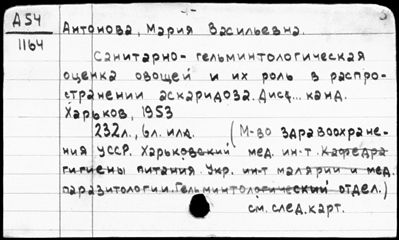 А54
1164
Антонова, Мария Васильевна.
Санитарно-гельминтологическая
оценка овощей и их роль в распро-
странении аскаридоза. Дисс... канд.
Харьков, 1953
232л., 6л. илл. (М-во здравоохране-
ния УССР. Харьковский мед. ин-т Кафедра
гигиены питания. Укр. ин-т малярии и мед.
паразитологии. Гельминтологический отдел.)
см. след. карт.